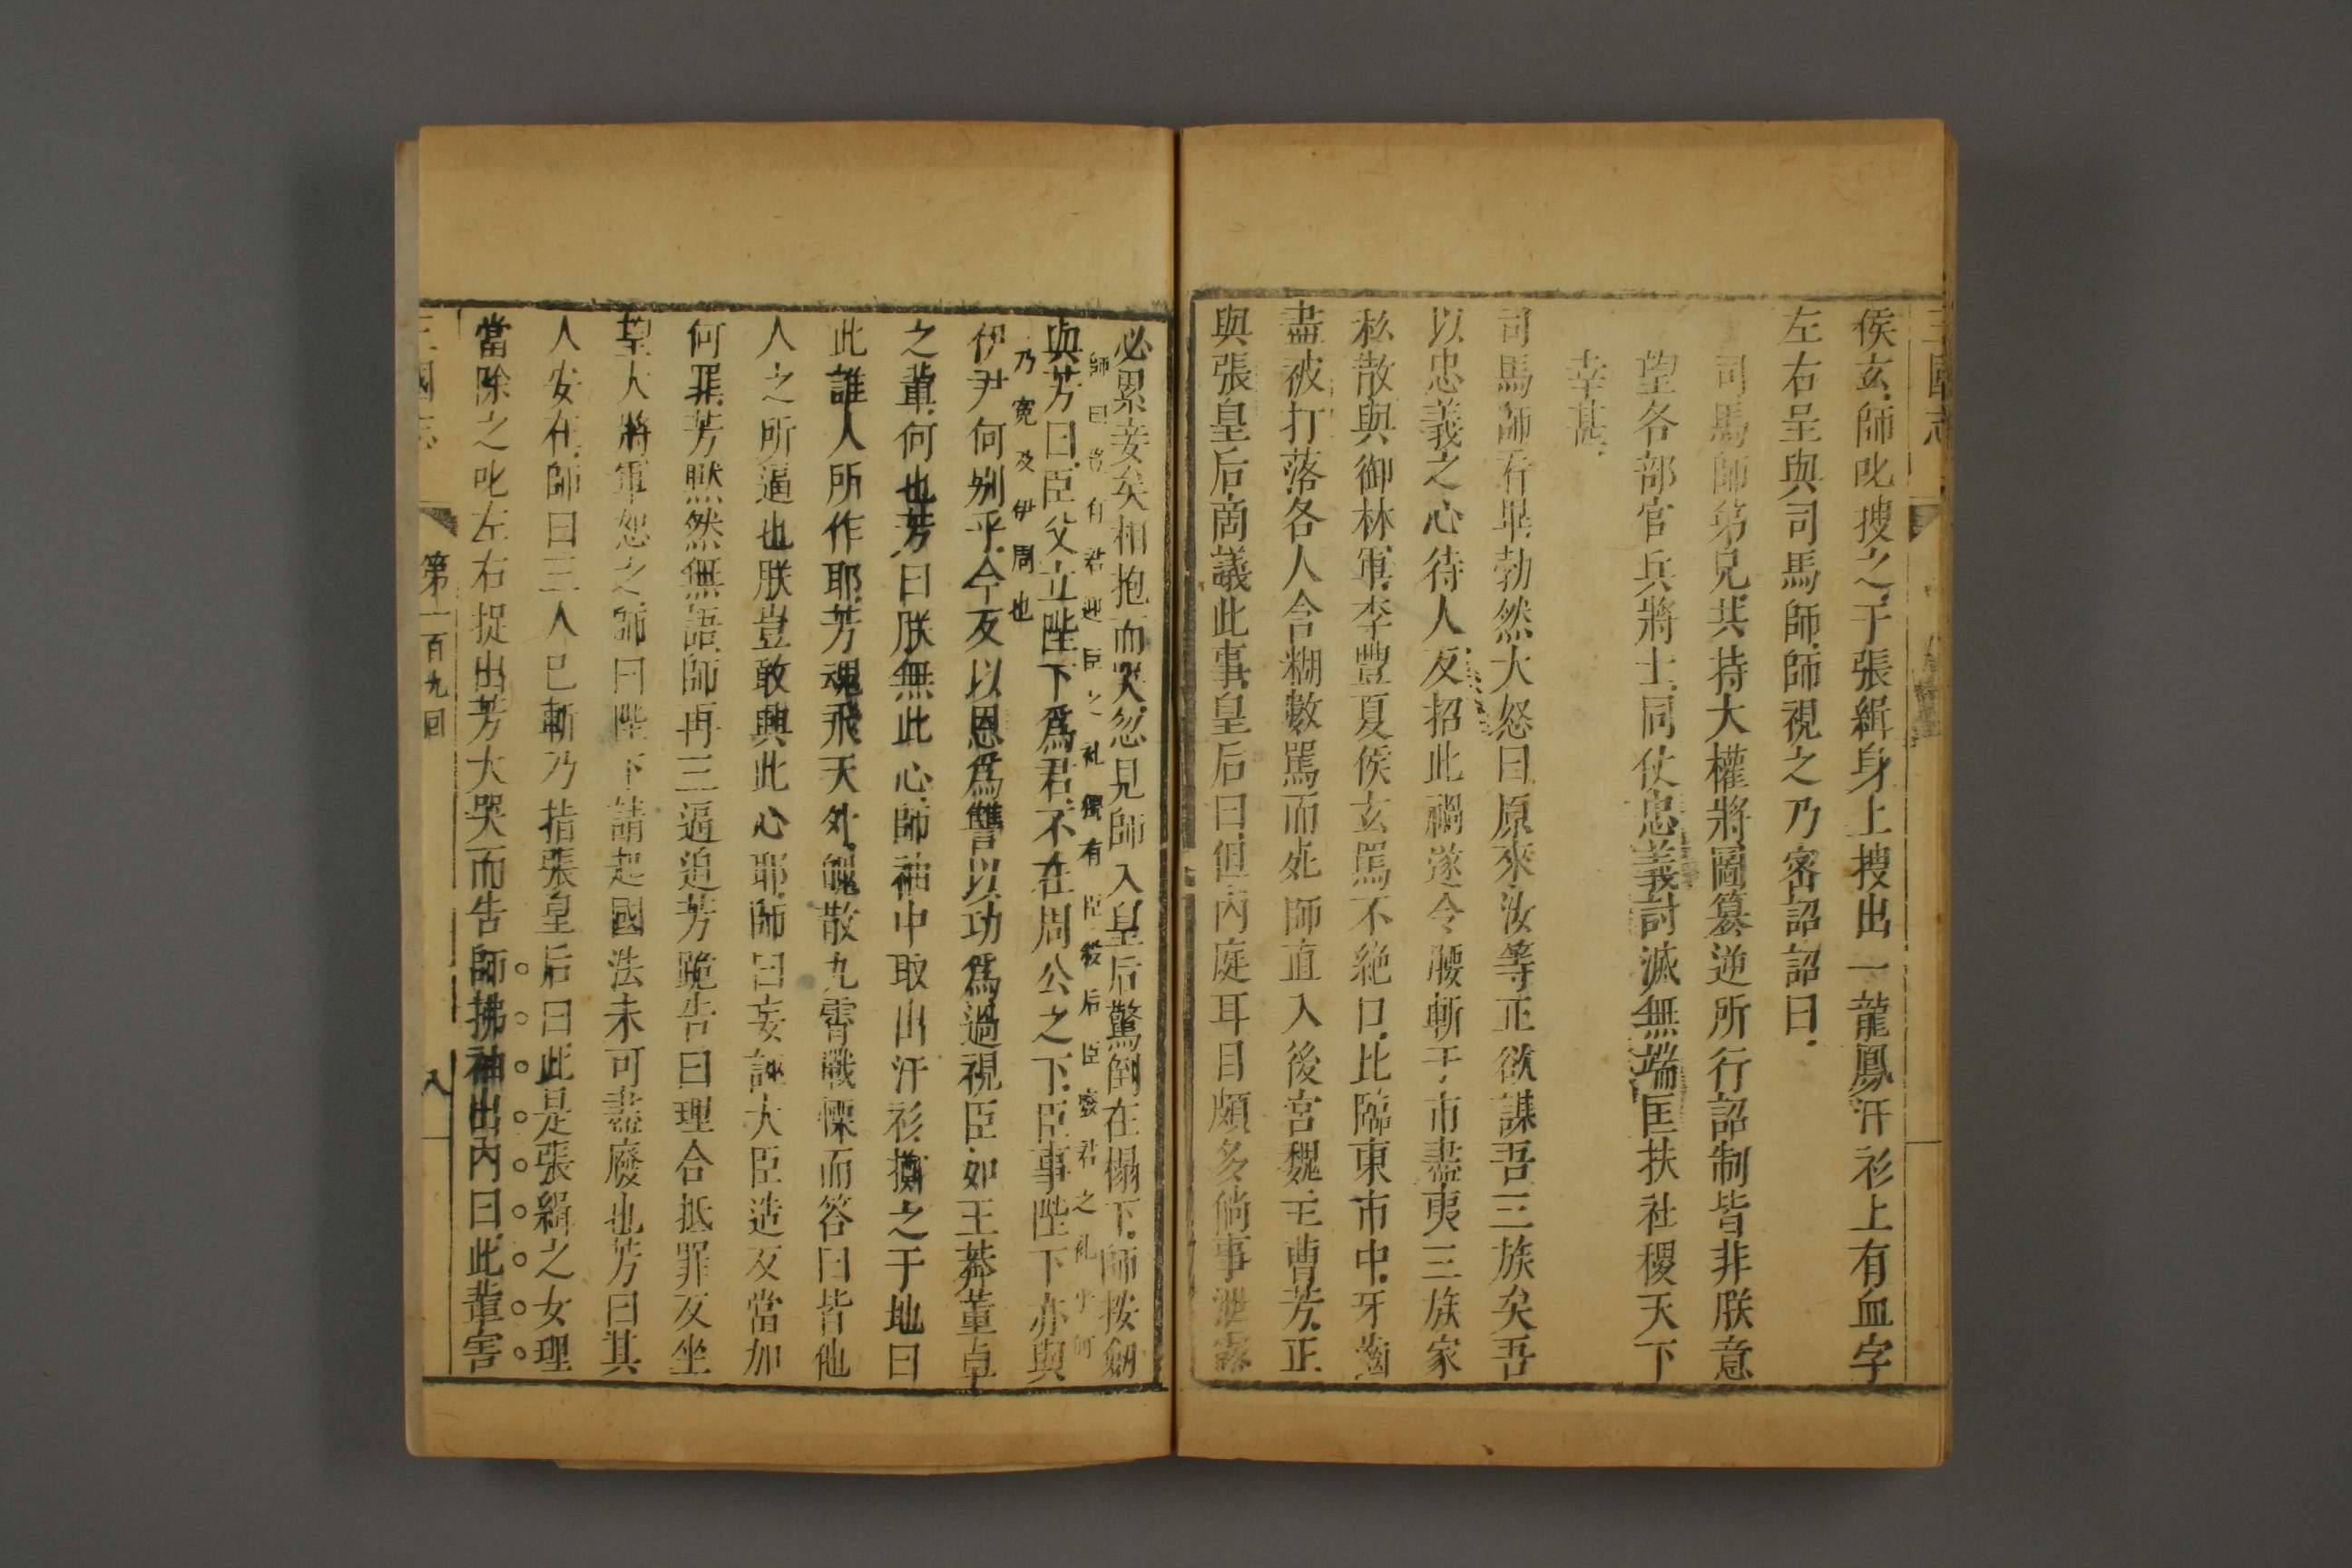 三國志
侯玄師叱搜之于張緝身上搜出一龍鳳汗衫上有血字
左右呈與司馬師師視之乃密詔詔曰
司馬師弟兄共持大權將圖篡逆所行詔制皆非朕意
望各部官兵將士同仗忠義討滅無端匡扶社稷天下
幸甚
司馬師看畢勃然大怒曰原來汝等正欲謀吾三族矣吾
以忠義之心待人反招此禍遂令腰斬于市盡夷三族家
私散與御林軍李豐夏侯玄罵不絕口比臨東市中牙齒
盡被打落各人含糊數罵而死師直入後宮魏主曹芳正
與張皇后商議此事皇后曰但內庭耳目頗多倘事泄露
必累妾矣相抱而哭忽見師入皇后驚倒在榻下師按劒
師曰昔有君迎臣之礼獨有臣殺后臣廢君之礼乎何
與芳曰臣父立陛下爲君不在周公之下臣事陛下亦與
乃寃及伊周也
伊尹何别乎今反以恩爲讐以功爲過視臣如王莽董卓
之輩何也芳曰朕無此心師袖中取出汗衫擲之于地曰
此誰人所作耶芳魂飛天外魄散九霄戰慄而答曰皆他
人之所逼也朕豈敢興此心耶師曰妄誣大臣造反當加
何罪芳默然無語師再三逼迫芳跪告曰理合抵罪反坐
望大將軍恕之師曰陛下請起國法未可盡廢也芳曰其
人安在師曰三人已斬乃指張皇后曰此是張緝之女理
當除之叱左右捉出芳大哭而告師拂袖出內曰此輩害
三國志 第一百九回 八